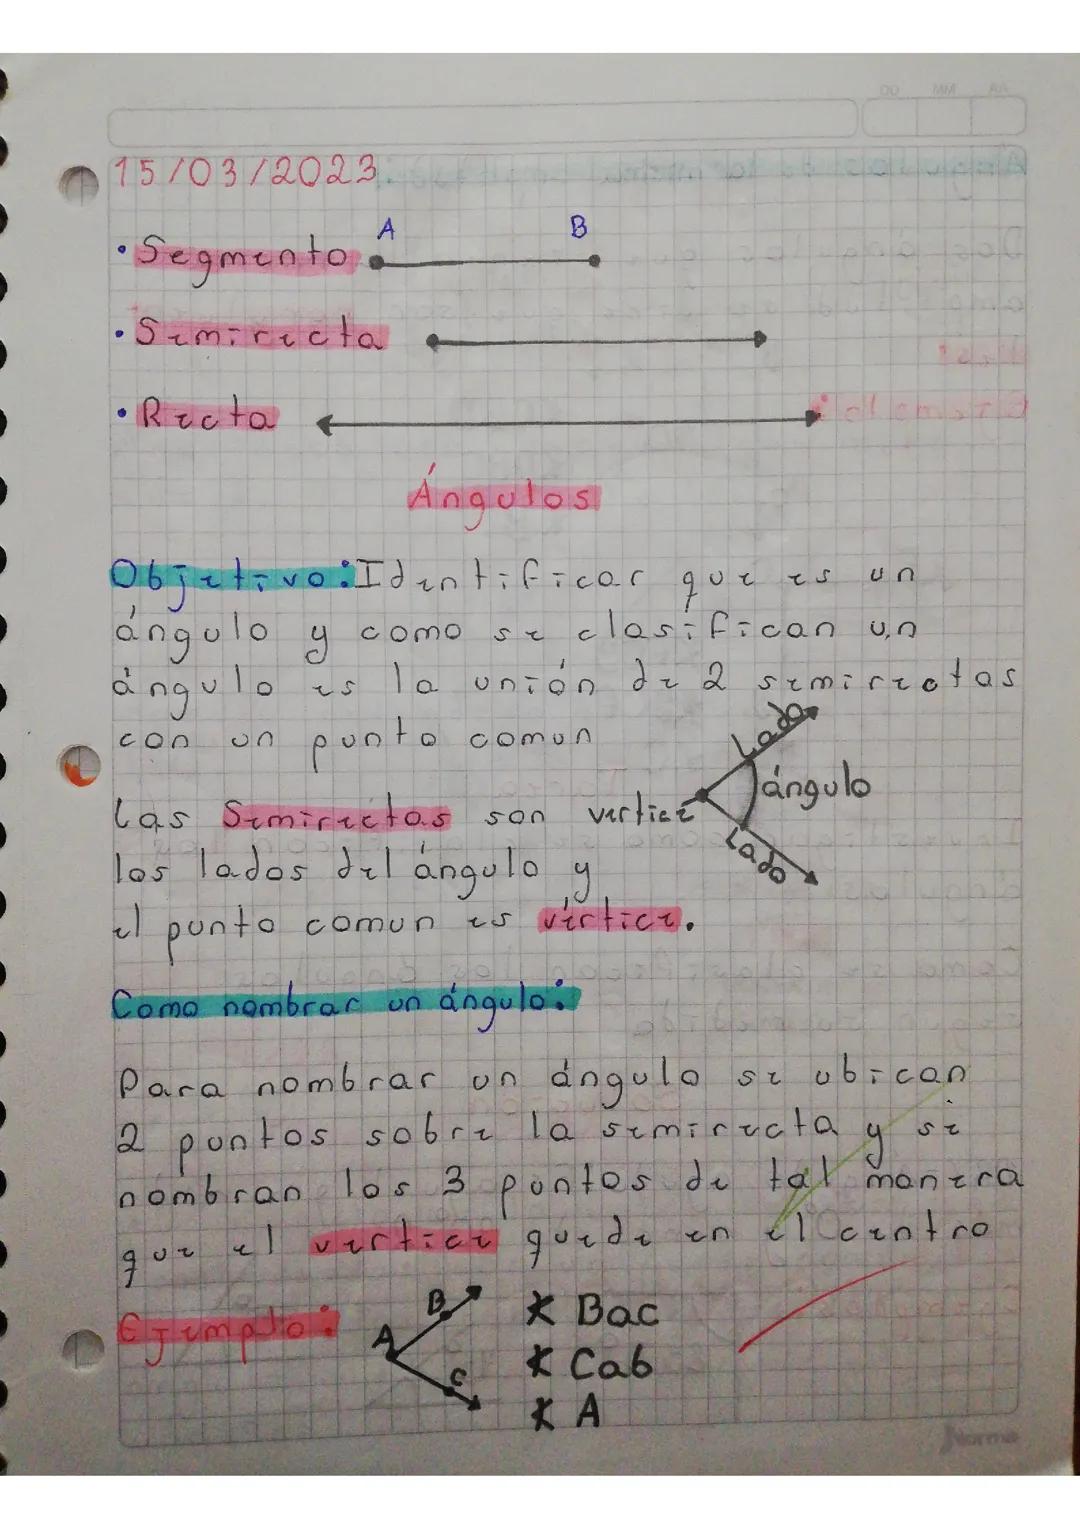 DD MM AA
15/03/2023
A B
• Segmento
• Semirecta
• Recta
Ángulos
Objetivo: Identificar que es un
ángulo y como se clasifican un
ángulo es la unión de 2 semirectas
con un punto comun
Lado
ángulo
vertice
Lado
las Semirectas son
los lados del ángulo y
el punto comun es vértice.
Como nombrar un ángulo:
Para nombrar un ángulo se ubican
2 puntos sobre la semirecta y se
nombran los 3 puntos de tal manera
que el vertice quede en el centro
Ejemplo:
B
A
C
* Bac
* Cab
* A
Norma